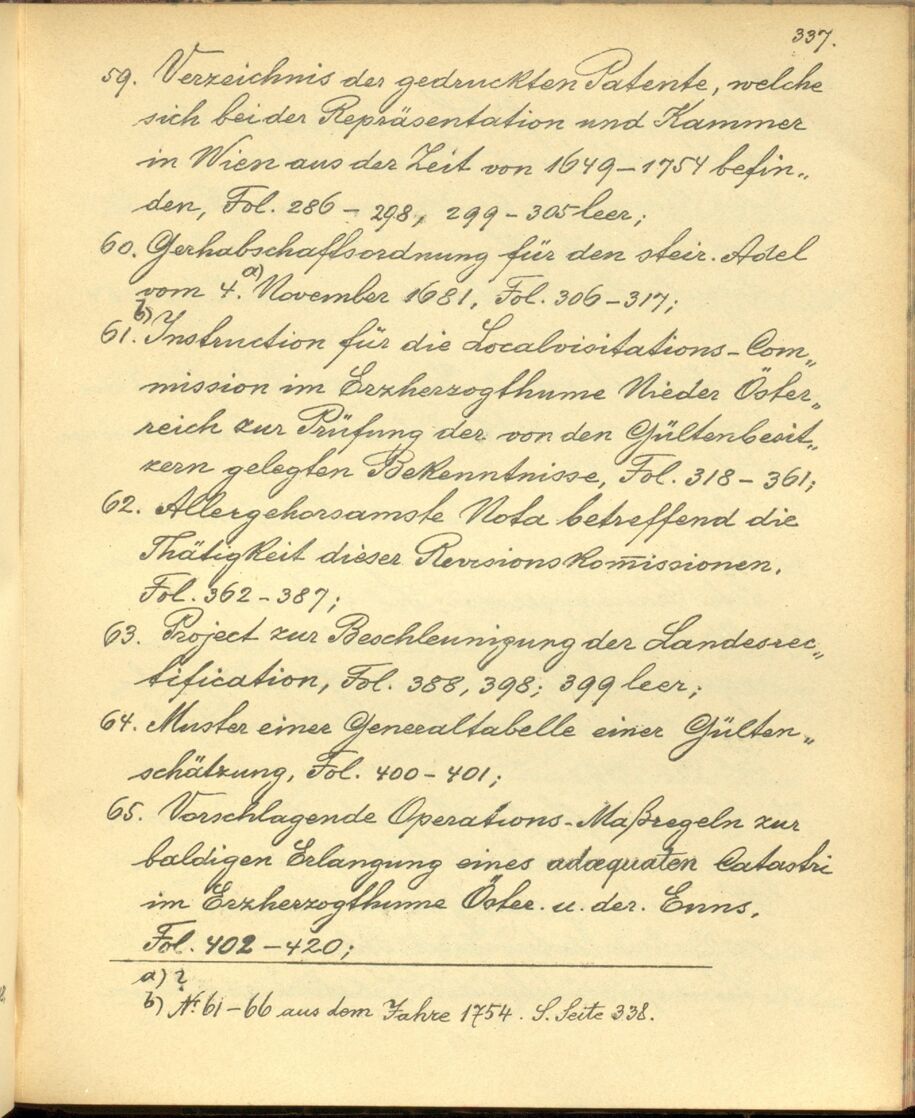 337.
59. Verzeichnis der gedruckten Patente, welche
sich bei der Repräsentation und Kammer
in Wien aus der Zeit von 1649–1754 befin„
den, Fol. 286 – 298, 299 – 305 leer;
60. Gerhabschaftsordnung für den steir. Adel
vom 4. a) November 1681, Fol. 306–317;
61. b) Instruction für die Localvisitations-Com„
mission im Erzherzogthume Nieder Öster„
reich zur Prüfung der von den Gültenbesit„
zern gelegten Bekenntnisse, Fol. 318 – 361;
62. Allergehorsamste Nota betreffend die
Thätigkeit dieser Revisionskom̅issionen,
Fol. 362 – 387;
63. Project zur Beschleunigung der Landesrec„
tification, Fol. 388, 398; 399 leer;
64. Muster einer Generaltabelle einer Gülten„
schätzung, Fol. 400 – 401;
65. Vorschlagende Operations-Maßregeln zur
baldigen Erlangung eines adæquaten Catastri
im Erzherzogthume Öster. u. der. Enns,
Fol. 402 – 420;
a) ?
b) Nr. 61 – 66 aus dem Jahre 1754. S. Seite 338.